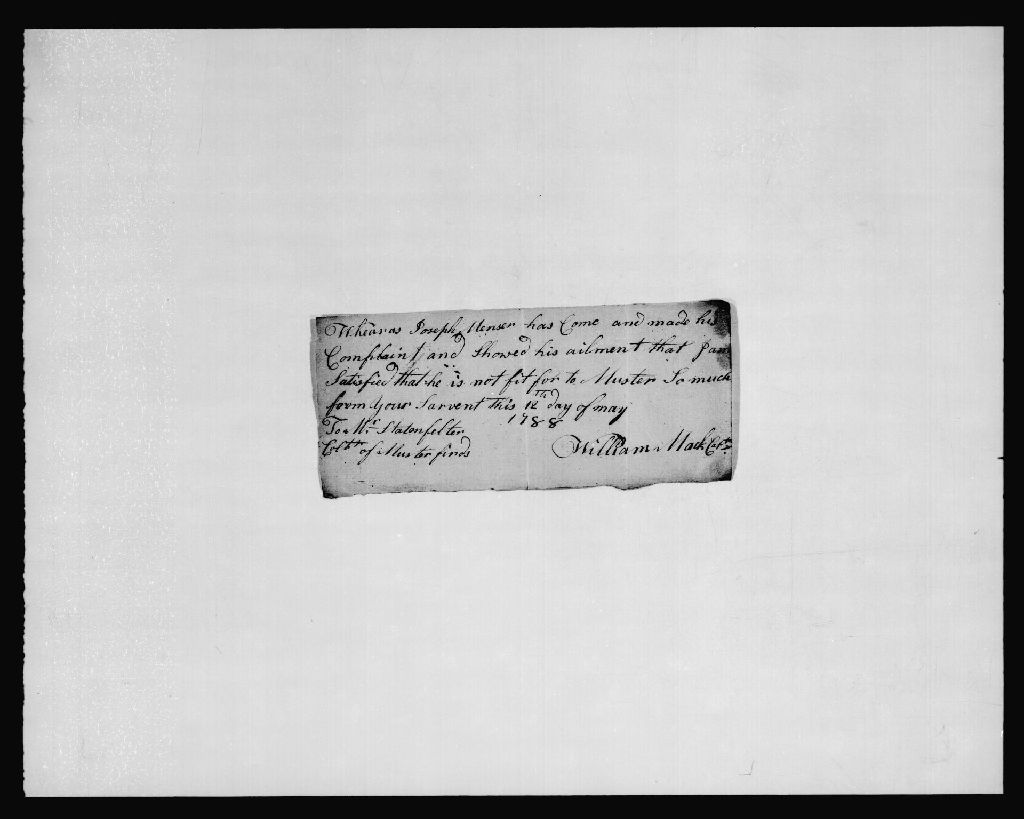 Whearas Joseph Menser has Come and made his
Complaint and Showed his ailment that I am
Satisfied that he is not fit for to Muster So much
from your Sarvent this 12th day of may
1788
To Mr. Statenfelter
of Muster fines
William Mack Capt